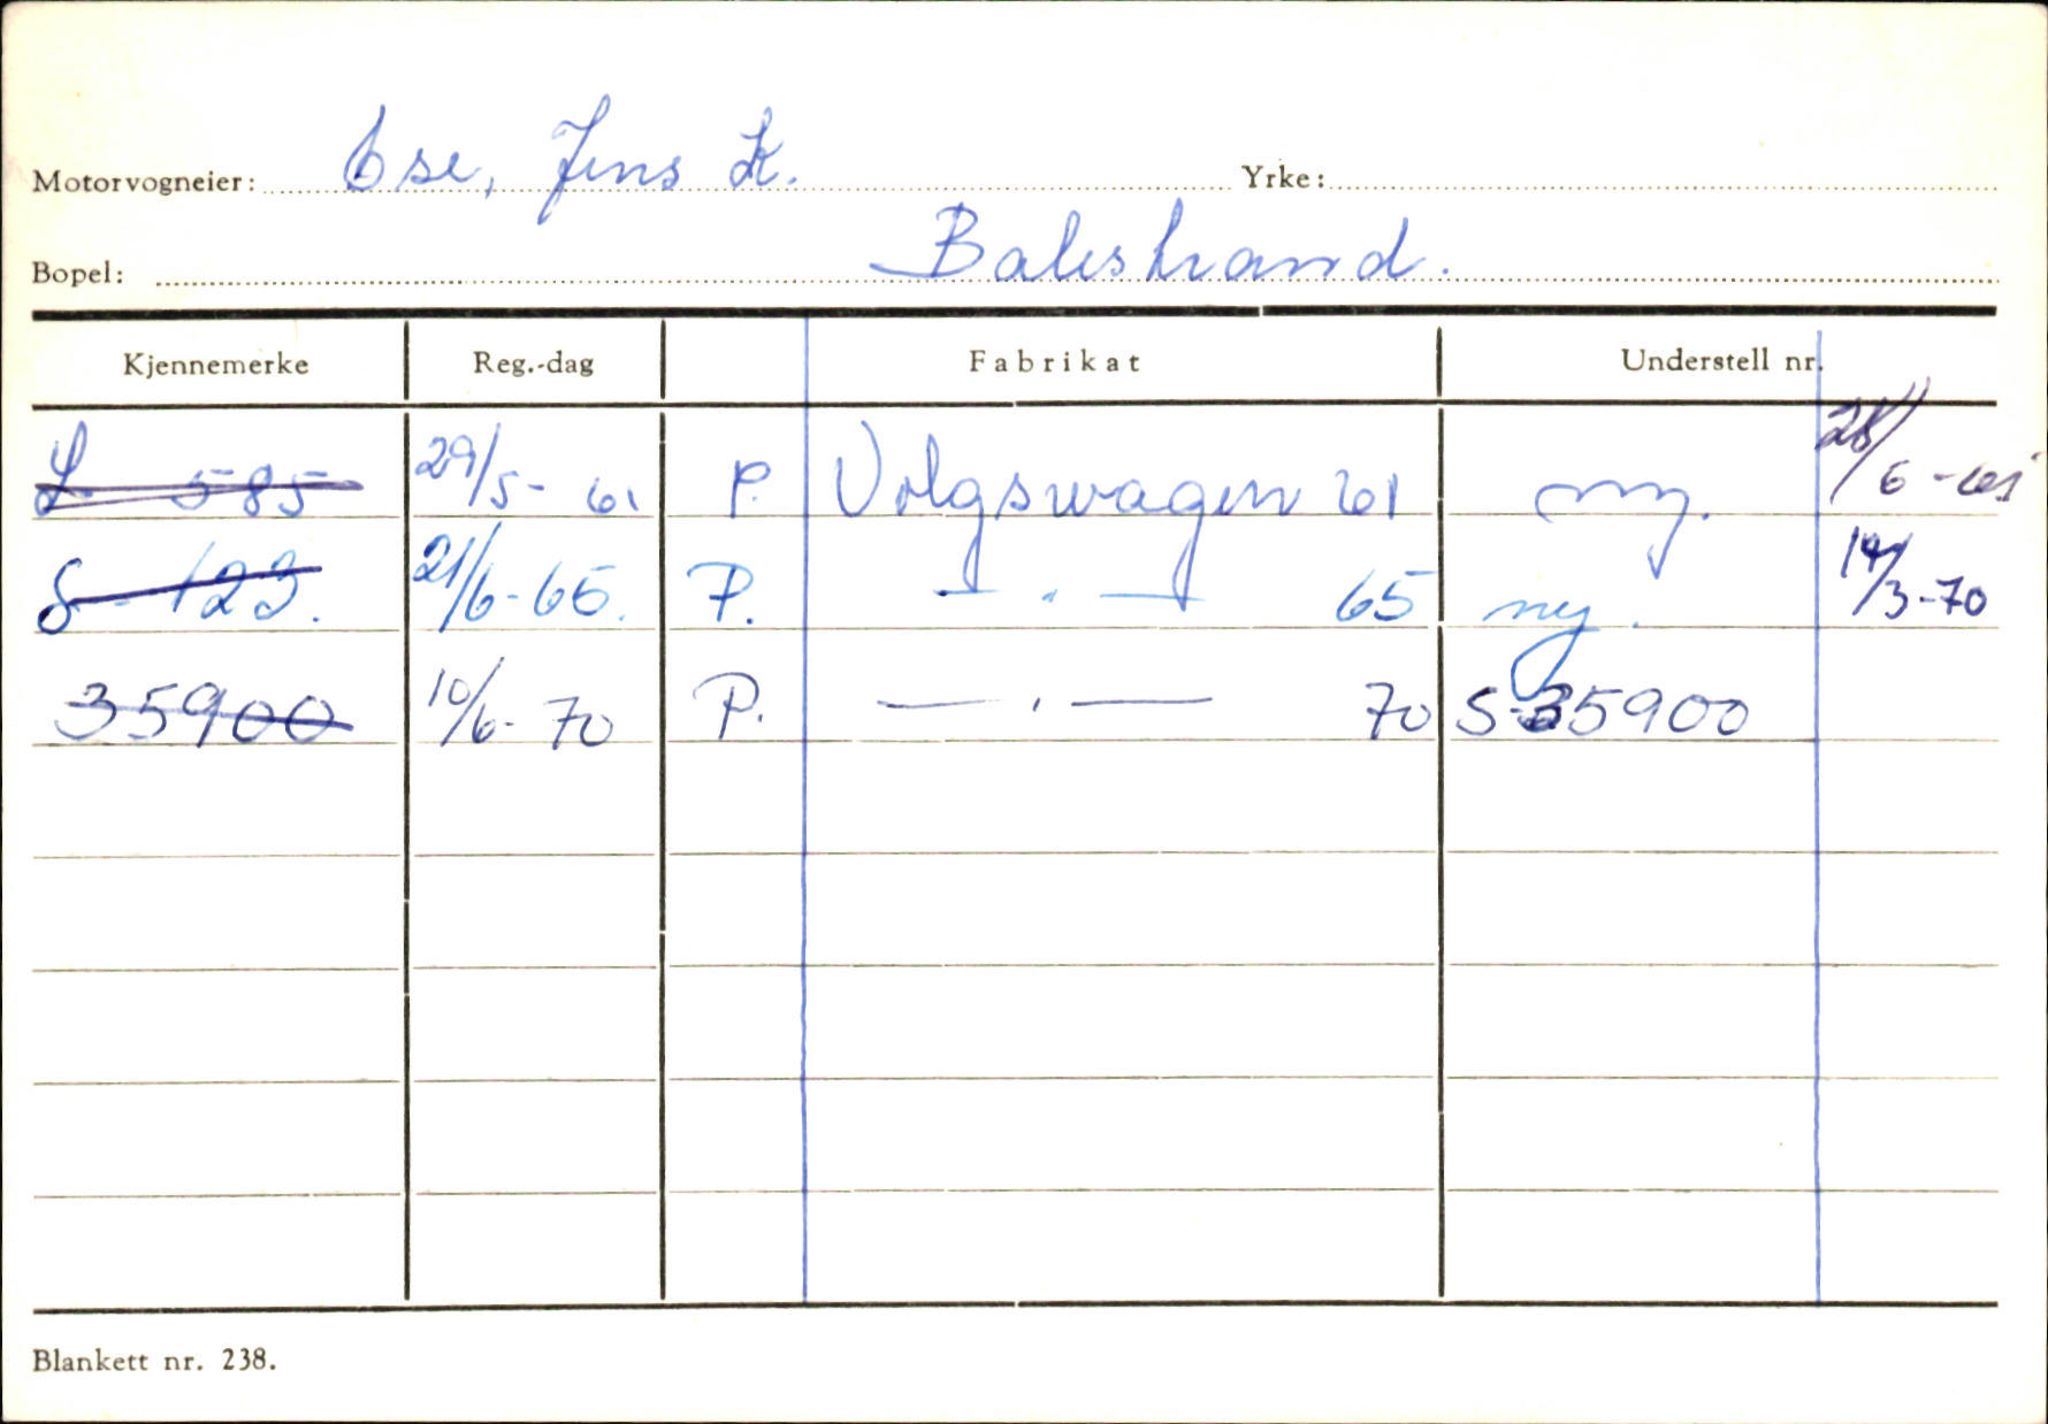 Motorvogneier: Ese, Jens K. Yrke:
Bopel: Balestrand.
Kjennemerke Reg.-dag Fabrikat Understell nr.
L 585 29/5-61 P. Volgswagen 61 ny. 28/6-65
S-123. 21/6-65. P. —"— 65 ny. 14/3-70
35900 10/6-70 P. —"— 70 S-35900
Blankett nr. 238.